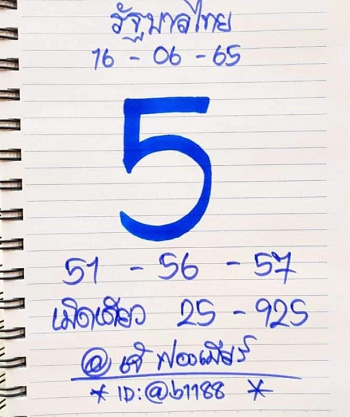 รัฐบาลไทย
16 - 06 - 65
5
51 - 56 - 57
เม็ดเดียว 25 - 925
@ เจ๊ฟองเบียร์
* ID:@b1188 *